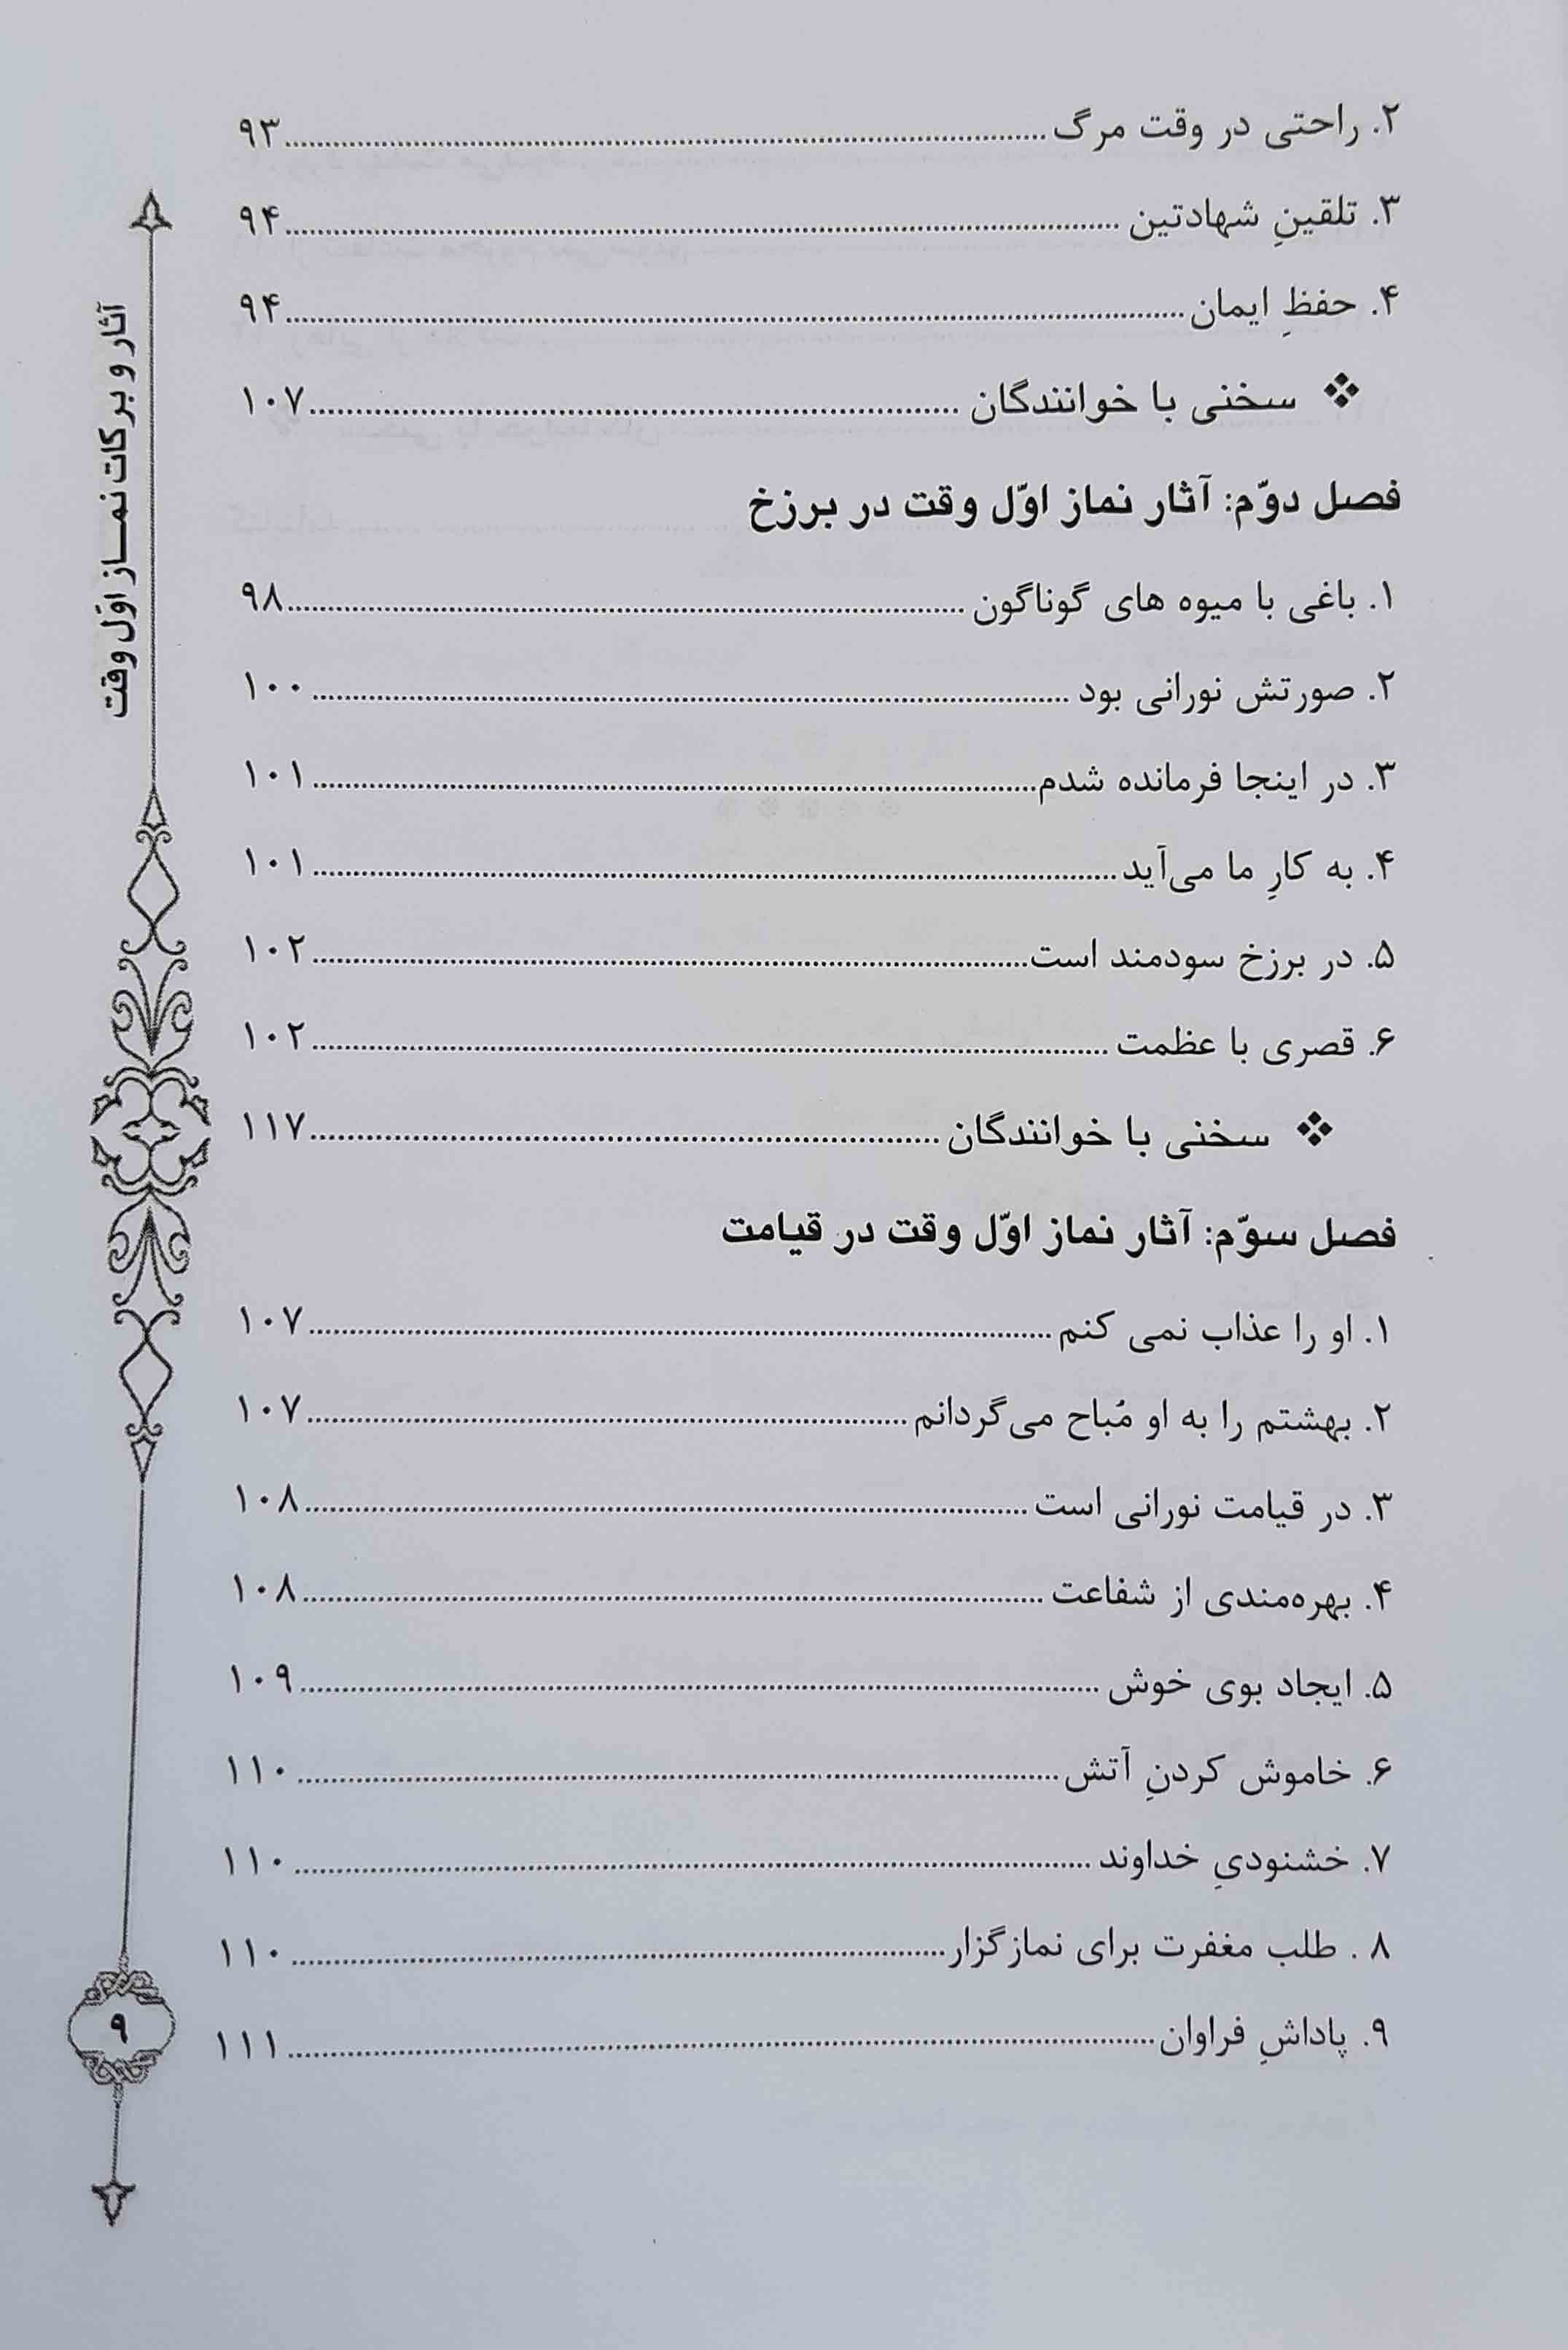 ۲. راحتی در وقت مرگ ........ ۹۳
۳. تلقینِ شهادتین ........ ۹۴
۴. حفظِ ایمان ........ ۹۴
❖ سخنی با خوانندگان ........ ۱۰۷
فصل دوّم: آثار نماز اوّل وقت در برزخ
۱. باغی با میوه های گوناگون ........ ۹۸
۲. صورتش نورانی بود ........ ۱۰۰
۳. در اینجا فرمانده شدم ........ ۱۰۱
۴. به کارِ ما می‌آید ........ ۱۰۱
۵. در برزخ سودمند است ........ ۱۰۲
۶. قصری با عظمت ........ ۱۰۲
❖ سخنی با خوانندگان ........ ۱۱۷
فصل سوّم: آثار نماز اوّل وقت در قیامت
۱. او را عذاب نمی کنم ........ ۱۰۷
۲. بهشتم را به او مُباح می‌گردانم ........ ۱۰۷
۳. در قیامت نورانی است ........ ۱۰۸
۴. بهره‌مندی از شفاعت ........ ۱۰۸
۵. ایجاد بوی خوش ........ ۱۰۹
۶. خاموش کردنِ آتش ........ ۱۱۰
۷. خشنودیِ خداوند ........ ۱۱۰
۸ . طلب مغفرت برای نمازگزار ........ ۱۱۰
۹. پاداشِ فراوان ........ ۱۱۱
آثار و برکات نمـــاز اوّل وقت
۹